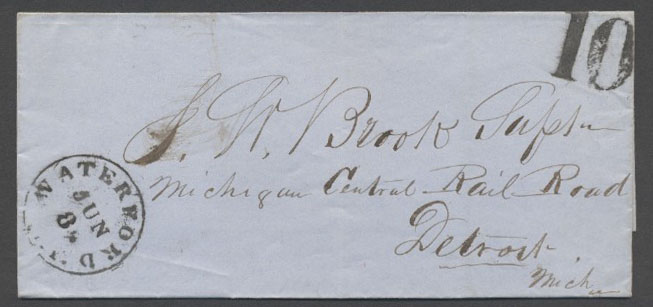 10
J. W. Brook Supt
Michigan Central Rail Road
Detroit
Mich
WATERFORD
JUN
8